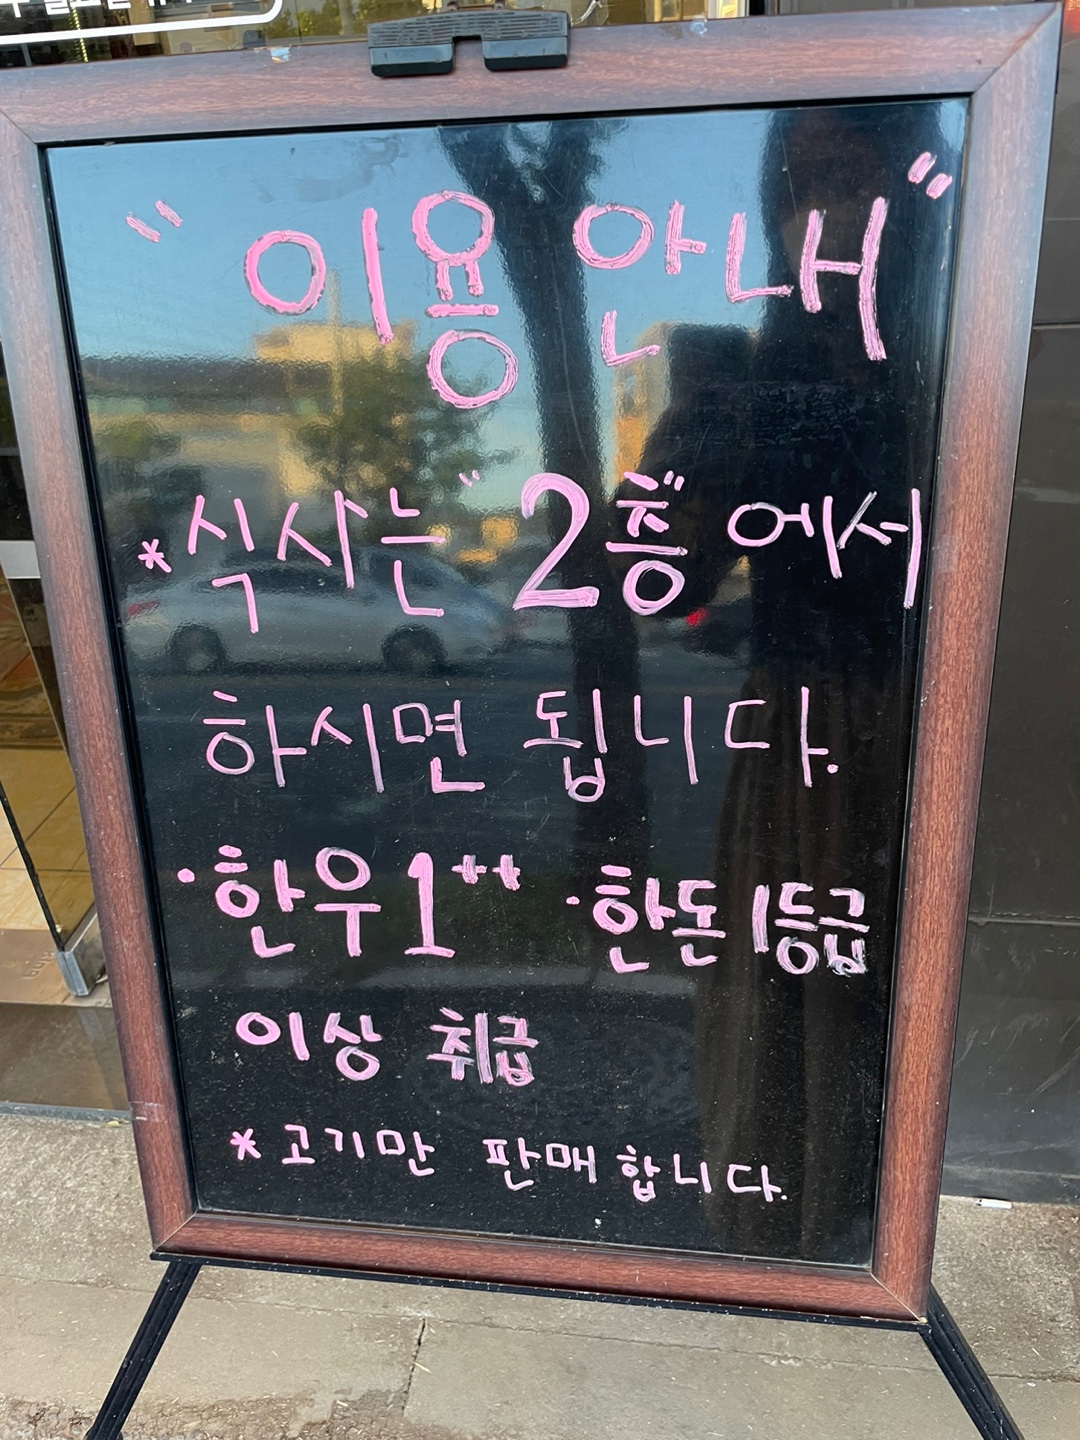 "이용 안내"
*식사는 "2층"에서
하시면 됩니다.
·한우1++ ·한돈1등급
이상 취급
*고기만 판매합니다.